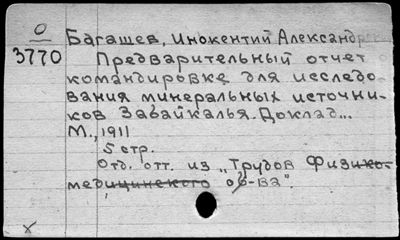 О
Багашев, Инокентий Александр
3770 Предварительный отчет
командировке для исследо-
вания минеральных источни-
ков Забайкалья. Доклад...
М., 1911
5 стр.
Отд. отт. из „Трудов Физико-
медицинского об-ва".
х